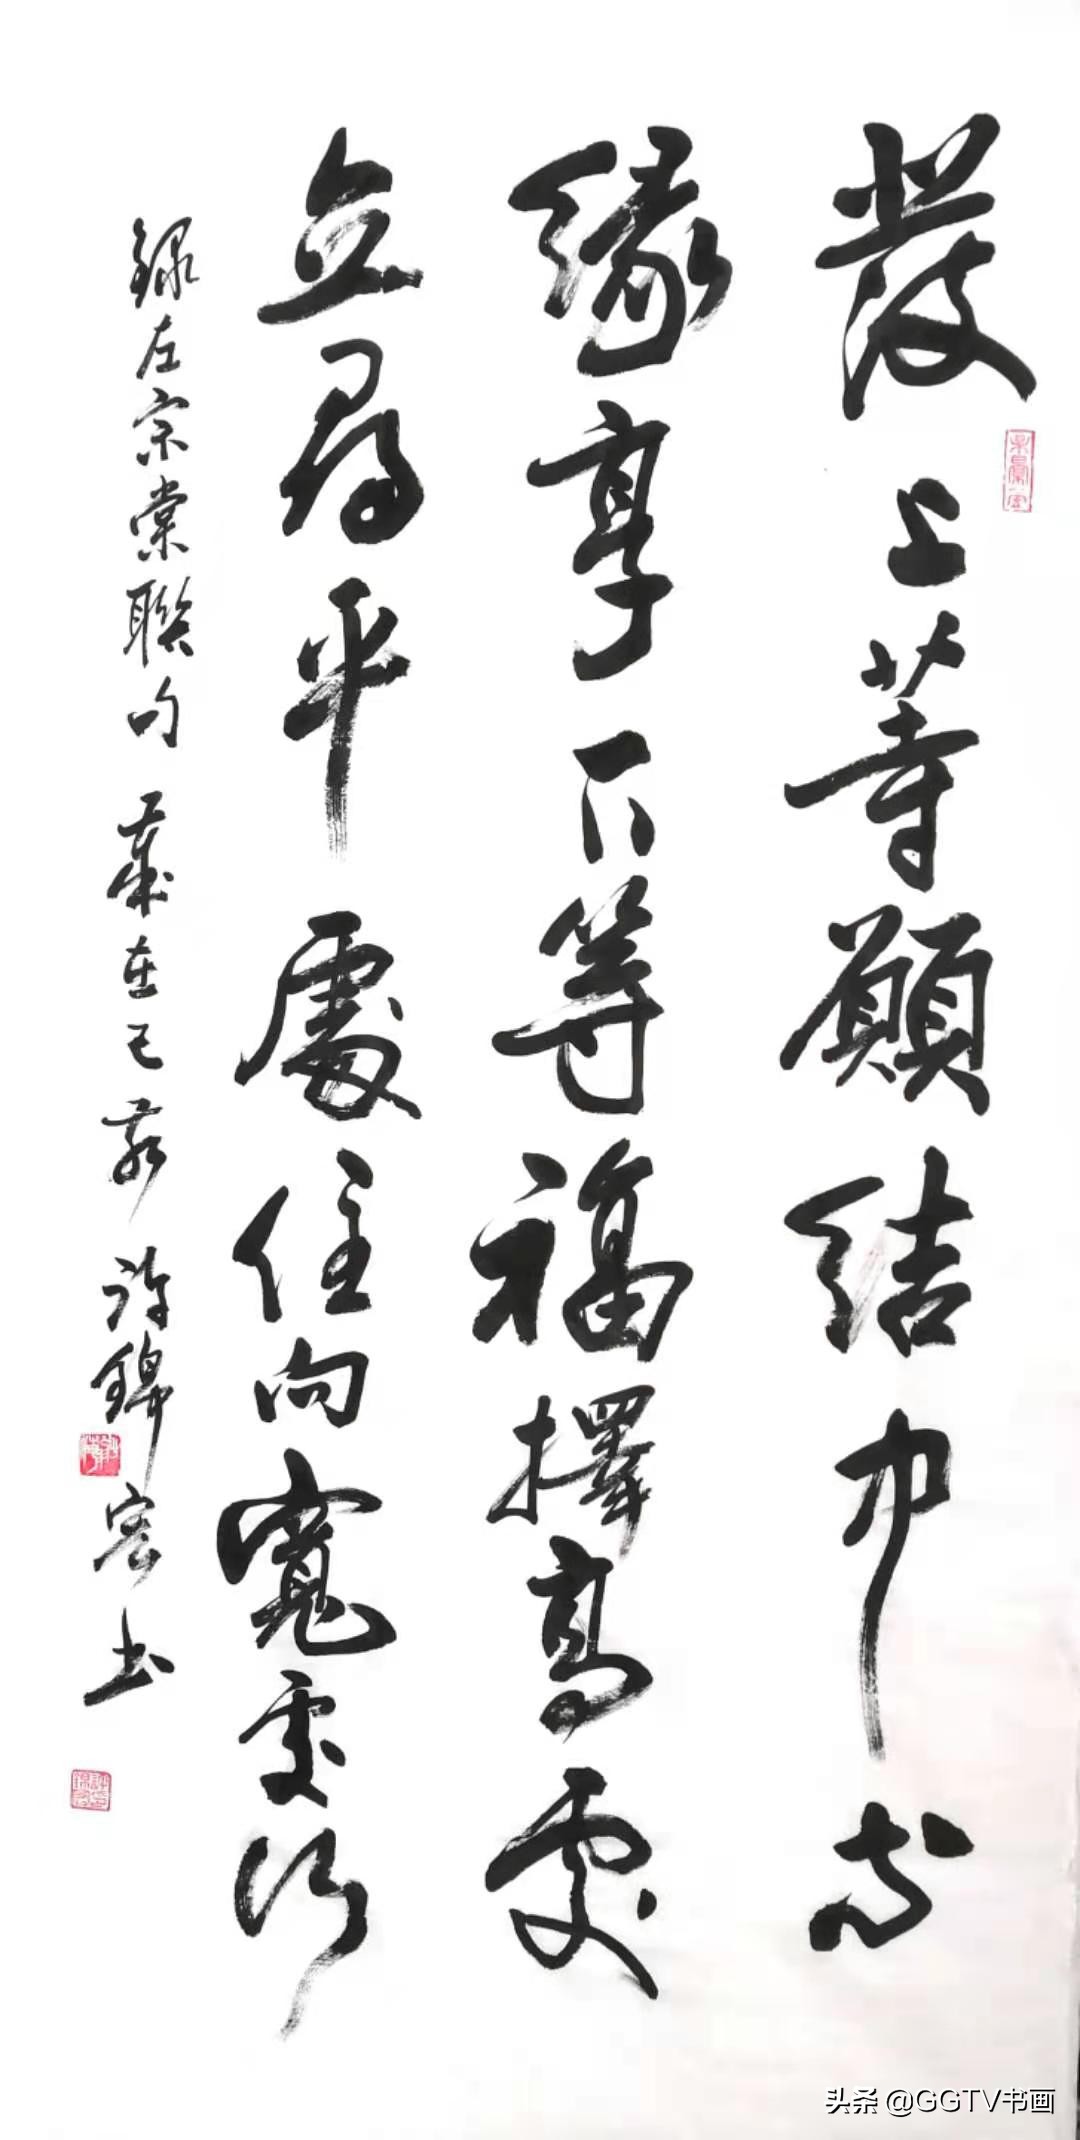 發上等願結中等
緣享下等福擇高處
立尋平處住向寬處行
錄左宗棠聯句 歲在己亥 許錦宏書
头条 @GGTV书画